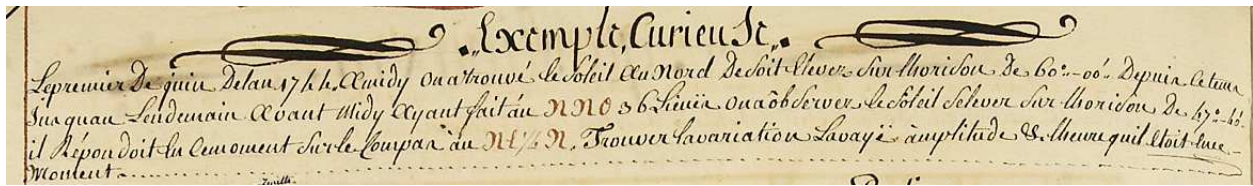 Exemple, Curieuse.
Le premier De juin De lan 1744. A midy on a trouvé le Soleil au Nord De Soit Élever Sur lhorison De 60°-00'. Depuis Ce tems
Jusquau Lendemain Avant Midy Ayant fait au NNO 36 Lieües on a ôbServer le Soleil Selever Sur lhorison De 47°-40'.
il Répondoit En Cemoment Sur le Compas au NE¼N. Trouver la variation La vraye âmplitude & lheure quil Etoit En ce
Moment.